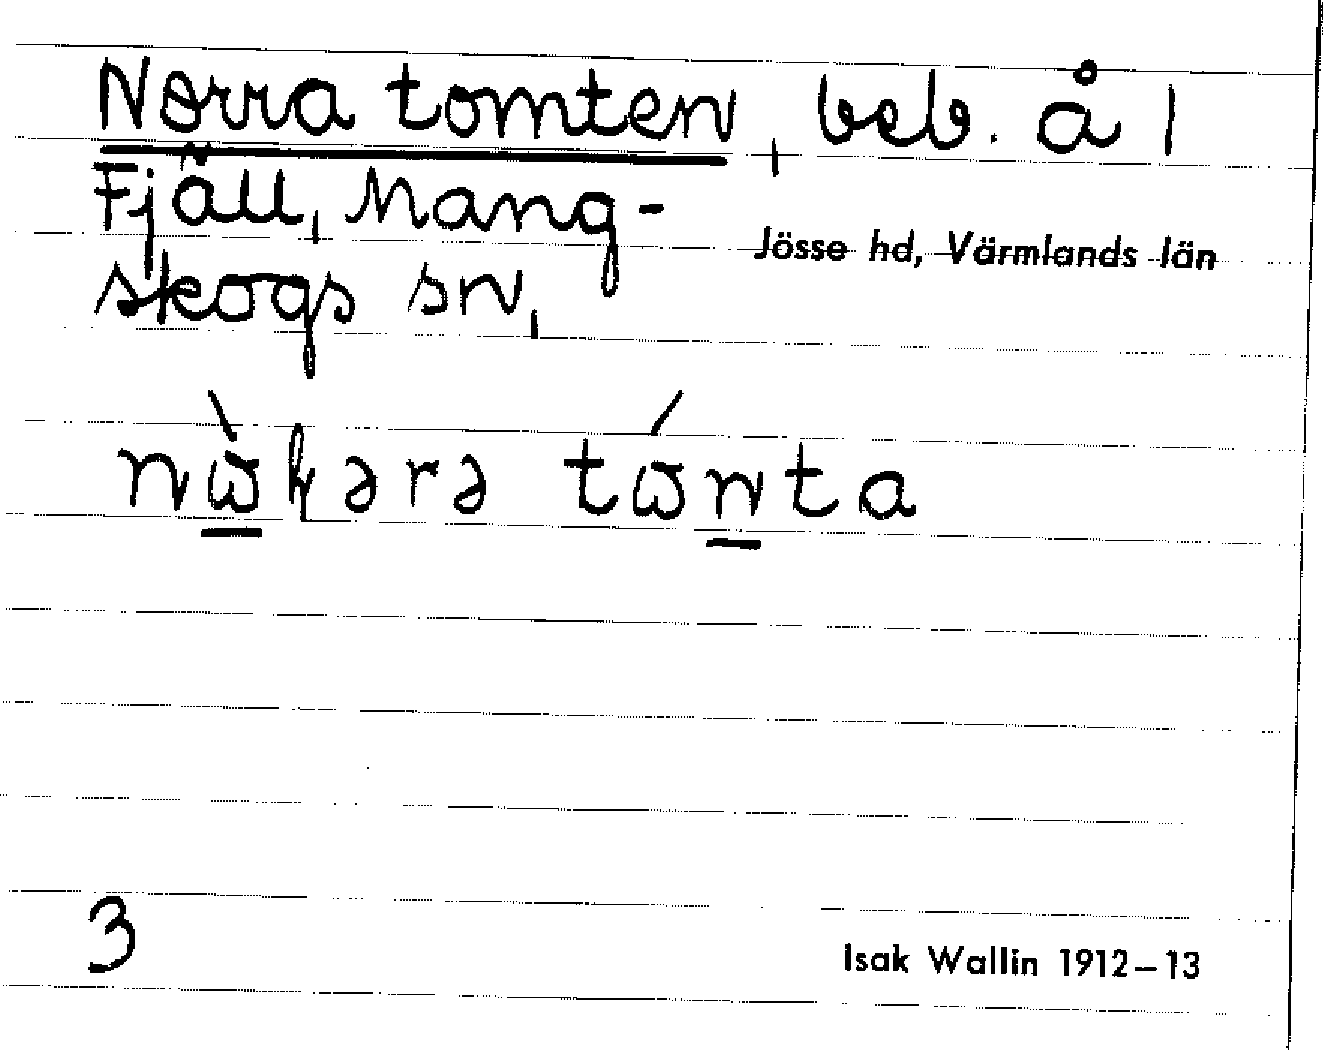 Norra tomten, beb. å 1
Fjäll, Mang-
skogs sn,
Jösse hd, Värmlands län
nὼkərə tώnta
3
Isak Wallin 1912–13